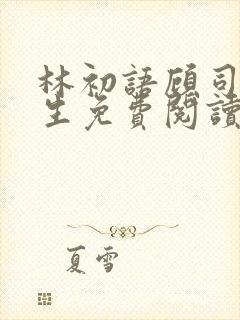 林初語顧司
生免費閱讀
夏雪